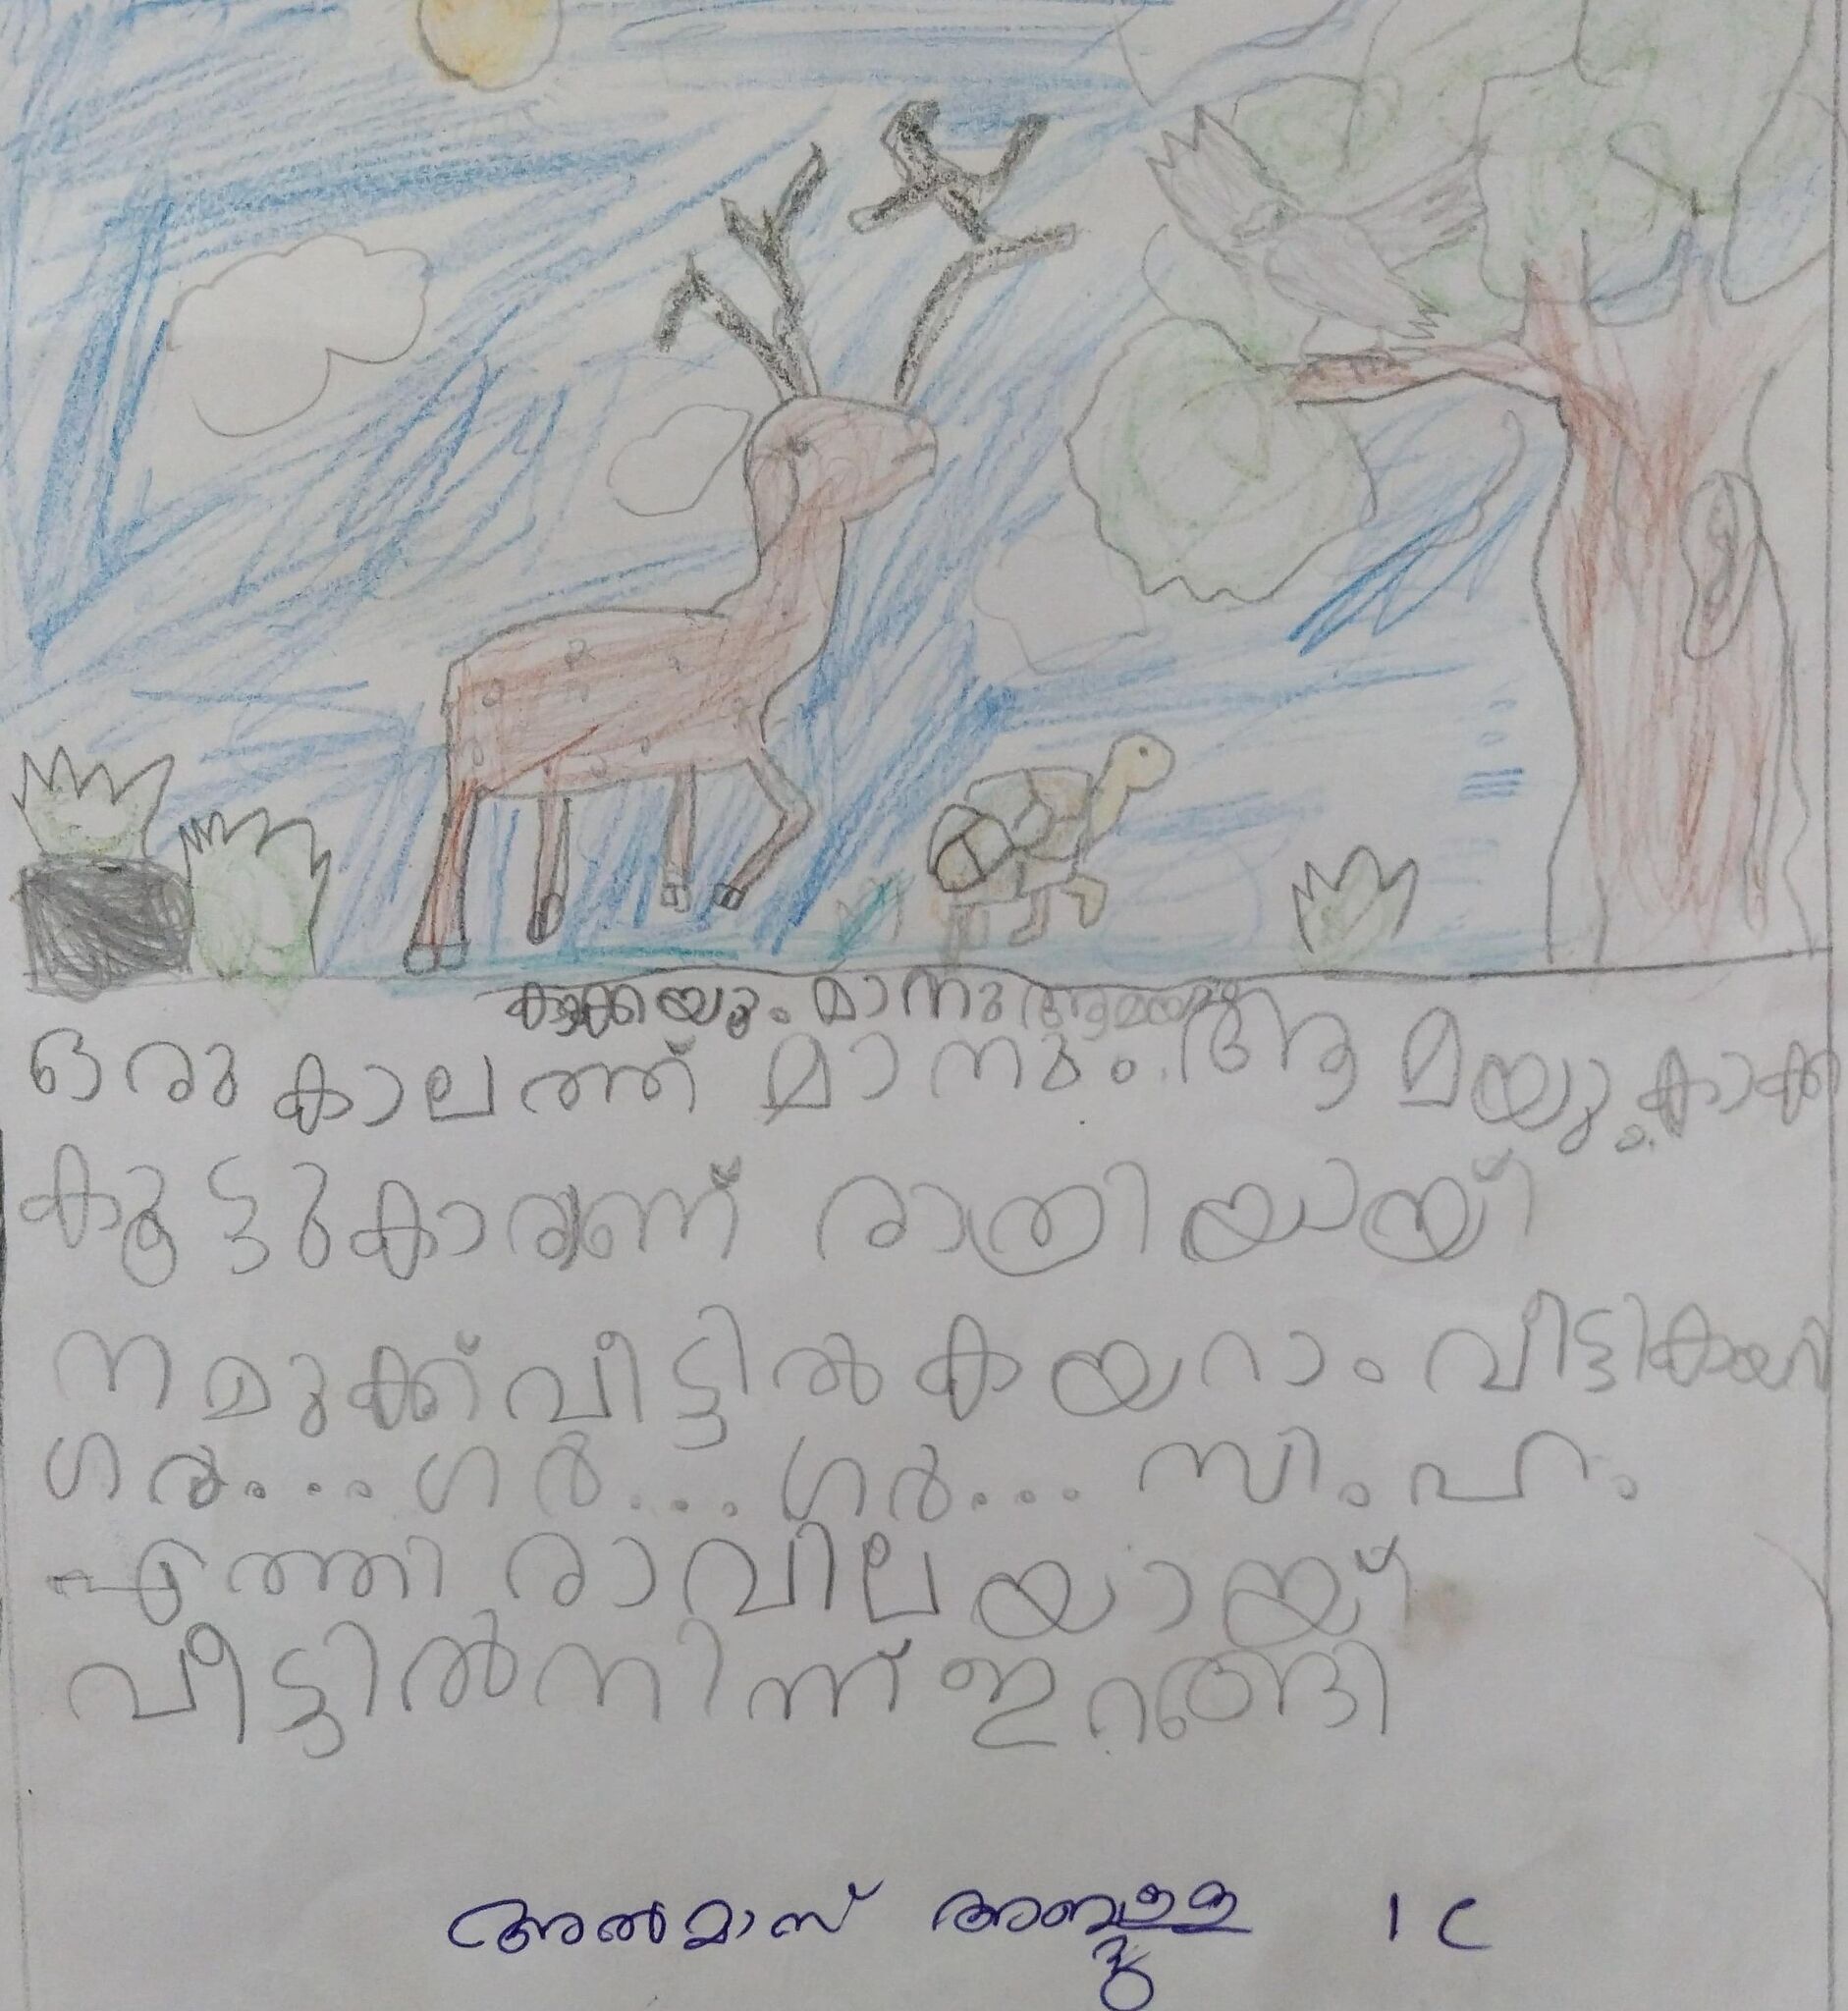 കാക്കയും മാനും ആമയും
ഒരു കാലത്ത് മാനും ആമയും കാക്ക
കൂട്ടുകാരണ് രാത്രിയായ്
നമുക്ക് വീട്ടിൽ കയറാം വീട്ടികയറി
ഗർ... ഗർ... ഗർ... സിംഹം
എത്തി രാവിലയായ്
വീട്ടിൽ നിന്ന് ഇറങ്ങി
അൽമാസ് അബ്ദുള്ള 1 C